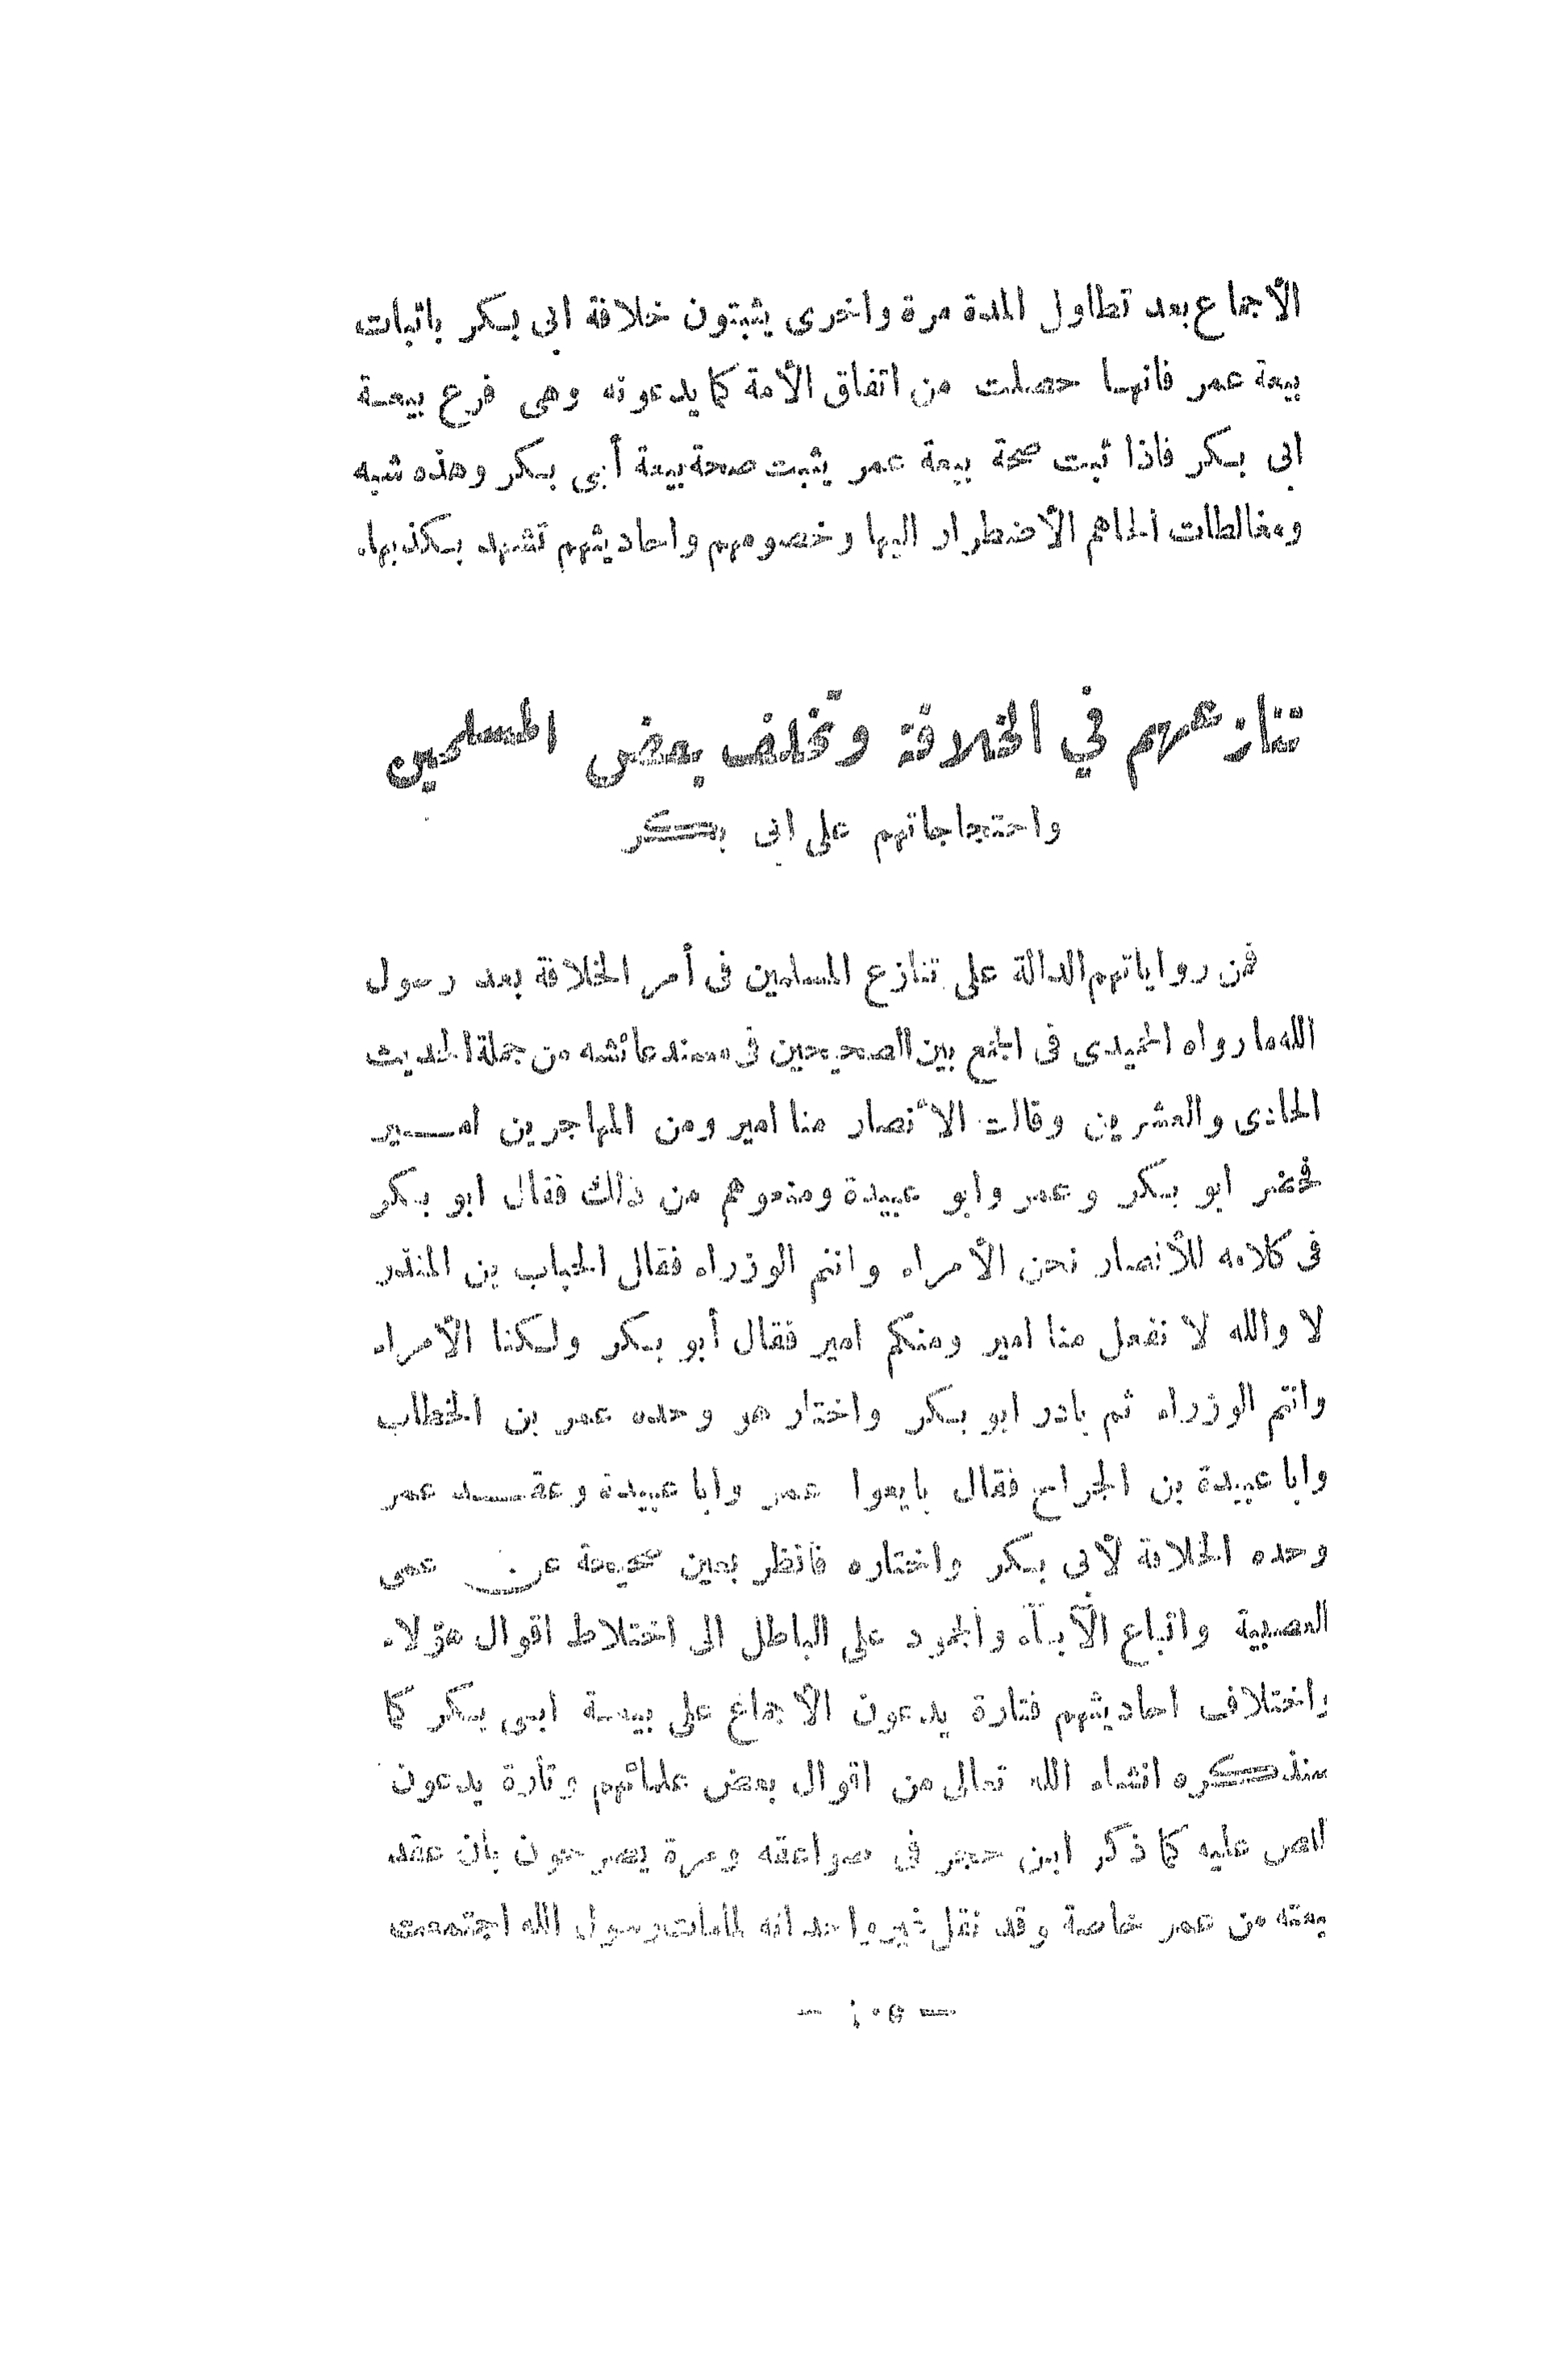 الأجماع بعد تطاول المدة مرة واخرى يثبتون خلافة ابي بكر باثبات
بيعة عمر فانها حصلت من اتفاق الأمة كما يدعونه وهى فرع بيعة
ابي بكر فاذا ثبت صحة بيعة عمر يثبت صحة بيعة أبي بكر وهذه شبه
ومغالطات الجاهم الأضطرار اليها وخصومهم واحاديثهم تشهد بكذبها.
تنازعهم في الخلافة وتخلف بعض المسلمين
واحتجاجاتهم على ابي بكر
فمن رواياتهم الدالة على تنازع المسلمين فى أمر الخلافة بعد رسول
الله ما رواه الحميدى فى الجمع بين الصحيحين فى مسند عائشه من جملة الحديث
الحادى والعشرين وقالت الأنصار منا امير ومن المهاجرين امير
فحضر ابو بكر وعمر وابو عبيدة ومنعوهم من ذلك فقال ابو بكر
فى كلامه للأنصار نحن الأمراء وانتم الوزراء فقال الحباب بن المنذر
لا والله لا نفعل منا امير ومنكم امير فقال أبو بكر ولكنا الأمراء
وانتم الوزراء ثم بادر ابو بكر واختار هو وحده عمر بن الخطاب
وابا عبيدة بن الجراح فقال بايعوا عمر وابا عبيدة وعقد عمر
وحده الخلافة لأبى بكر واختاره فانظر بعين صحيحة عن عمى
العصبية واتباع الآبآء والجمود على الباطل الى اختلاط اقوال هؤلاء
واختلاف احاديثهم فتارة يدعون الأجماع على بيعة ابى بكر كما
سنذكره انشاء الله تعالى من اقوال بعض علمائهم وتارة يدعون
النص عليه كما ذكر ابن حجر فى صواعقه ومرة يصرحون بأن عقد
بيعته من عمر خاصة وقد نقل غير واحد انه لما مات رسول الله اجتمعت